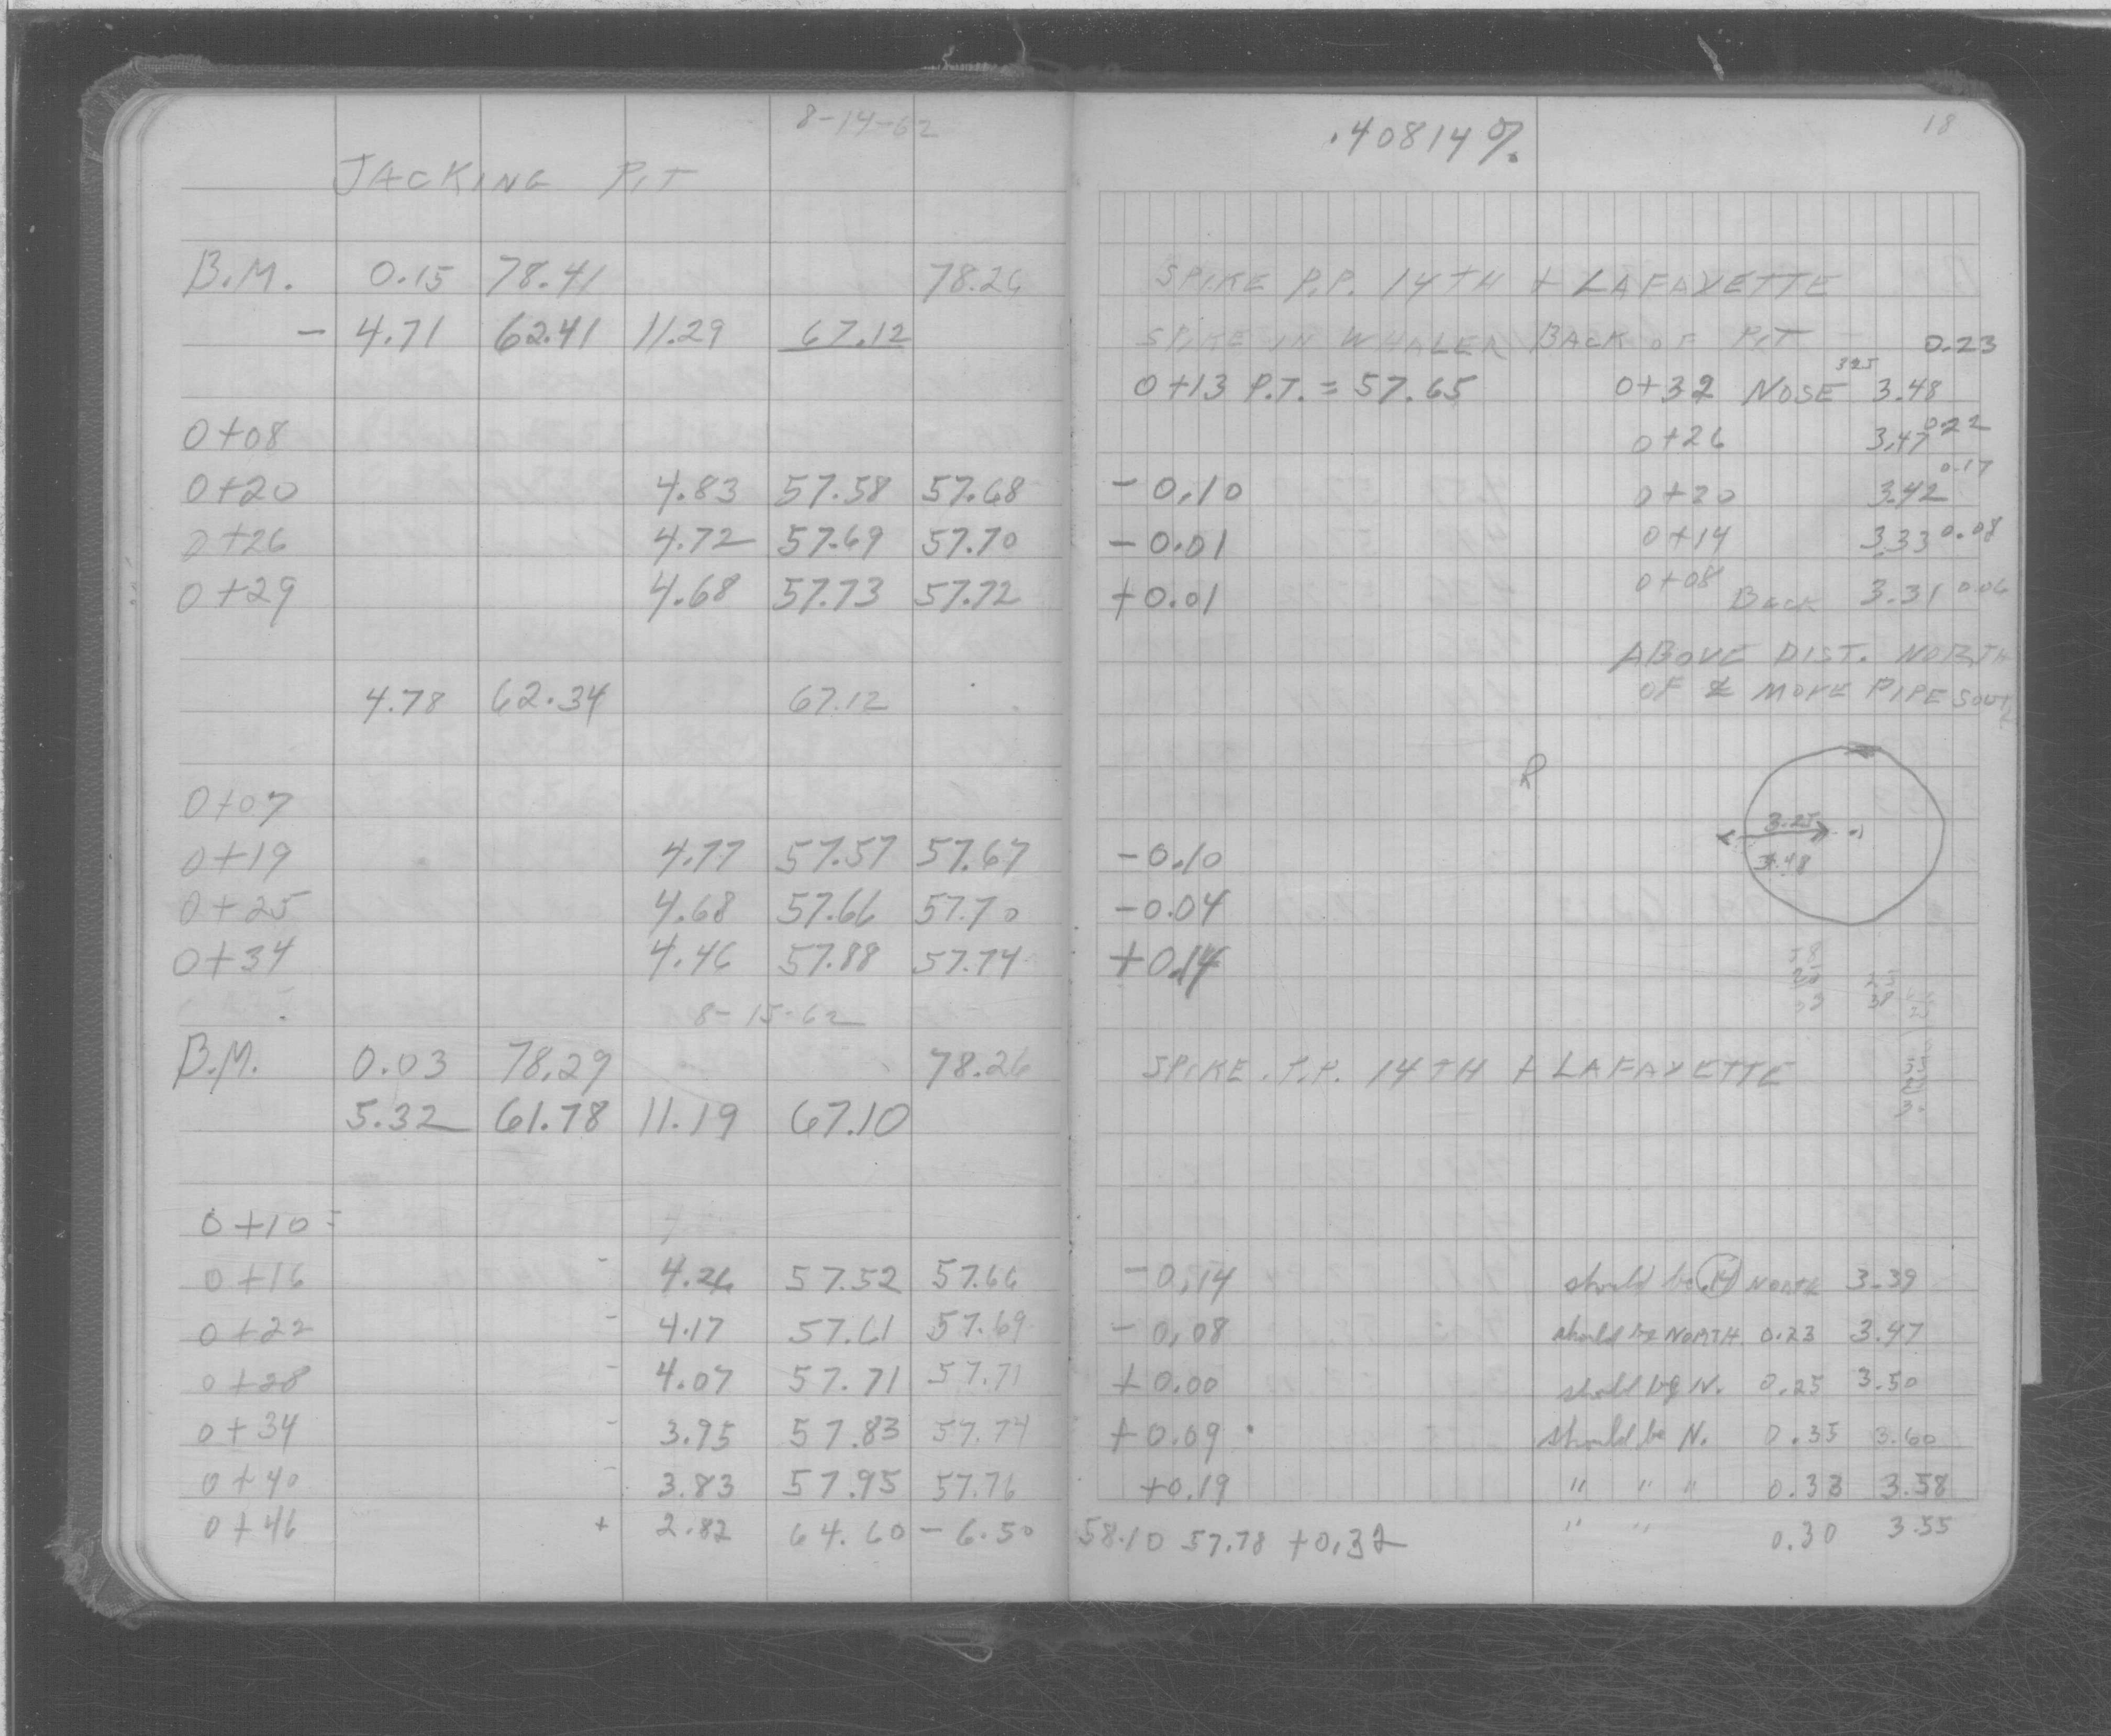 8-14-62
JACKING PIT
B.M. 0.15 78.41 78.26
- 4.71 62.41 11.29 67.12
0+08
0+20 4.83 57.58 57.68
0+26 4.72 57.69 57.70
0+29 4.68 57.73 57.72
4.78 62.34 67.12
0+07
0+19 4.77 57.57 57.67
0+25 4.68 57.66 57.70
0+34 4.46 57.88 57.74
8-15-62
B.M. 0.03 78.29 78.26
5.32 61.78 11.19 67.10
0+10
0+16 - 4.26 57.52 57.66
0+22 - 4.17 57.61 57.69
0+28 - 4.07 57.71 57.71
0+34 - 3.95 57.83 57.74
0+40 - 3.83 57.95 57.76
0+46 + 2.82 64.60 - 6.50
18
.40814%
SPIKE P.P. 14TH + LAFAYETTE
SPIKE IN WHALER BACK OF PIT 0.23
0+13 P.T. = 57.65 0+32 NOSE 325 3.48
0+26 3.47 0.22
- 0.10 0+20 3.42 0.17
- 0.01 0+14 3.33 0.08
+ 0.01 0+08 Back 3.31 0.06
ABOVE DIST. NORTH
OF ℄ MOVE PIPE SOUTH
R
3.25
3.48
- 0.10
- 0.04
+ 0.14
SPIKE P.P. 14TH + LAFAYETTE
- 0.14 should be .14 NORTH 3.39
- 0.08 should be NORTH. 0.23 3.47
+ 0.00 should be N. 0.25 3.50
+ 0.09 should be N. 0.35 3.60
+0.19 " " " 0.33 3.58
58.10 57.78 +0.32 " " 0.30 3.55